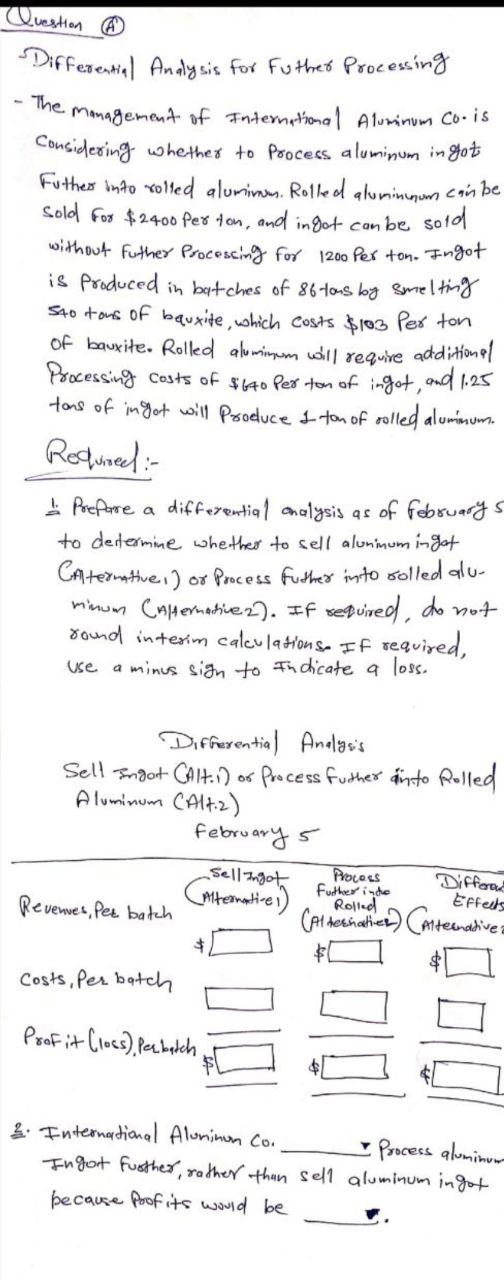 Question A
Differential Analysis for Futher Processing
- The management of International Aluminum Co. is
Considering whether to Process aluminum ingot
Futher into rolled aluminum. Rolled aluminum can be
sold for $2400 per ton, and ingot can be sold
without futher Processing for 1200 Per ton. Ingot
is Produced in batches of 86 tons by smelting
540 tons of bauxite, which costs $103 Per ton
of bauxite. Rolled aluminum will require additional
Processing costs of $640 Per ton of ingot, and 1.25
tons of ingot will Produce 1 ton of rolled aluminum.
Required :-
1. Prepare a differential analysis as of february 5
to determine whether to sell aluminum ingot
(Alternative 1) or Process futher into rolled alu-
minum (Alternative 2). If required, do not
round interim calculations. If required,
use a minus sign to Indicate a loss.
Differential Analysis
Sell Ingot (Alt.1) or Process Futher into Rolled
Aluminum (Alt.2)
february 5
Sell Ingot (Alternative 1)
Process Futher into Rolled (Alternative 2)
Effects (Alternative 2
Revenues, Per batch
$ $ $
Costs, Per batch
Profit (loss), Per batch
$ $ $
2. International Aluminum Co. Process aluminum
Ingot further, rather than sell aluminum ingot
because profits would be .